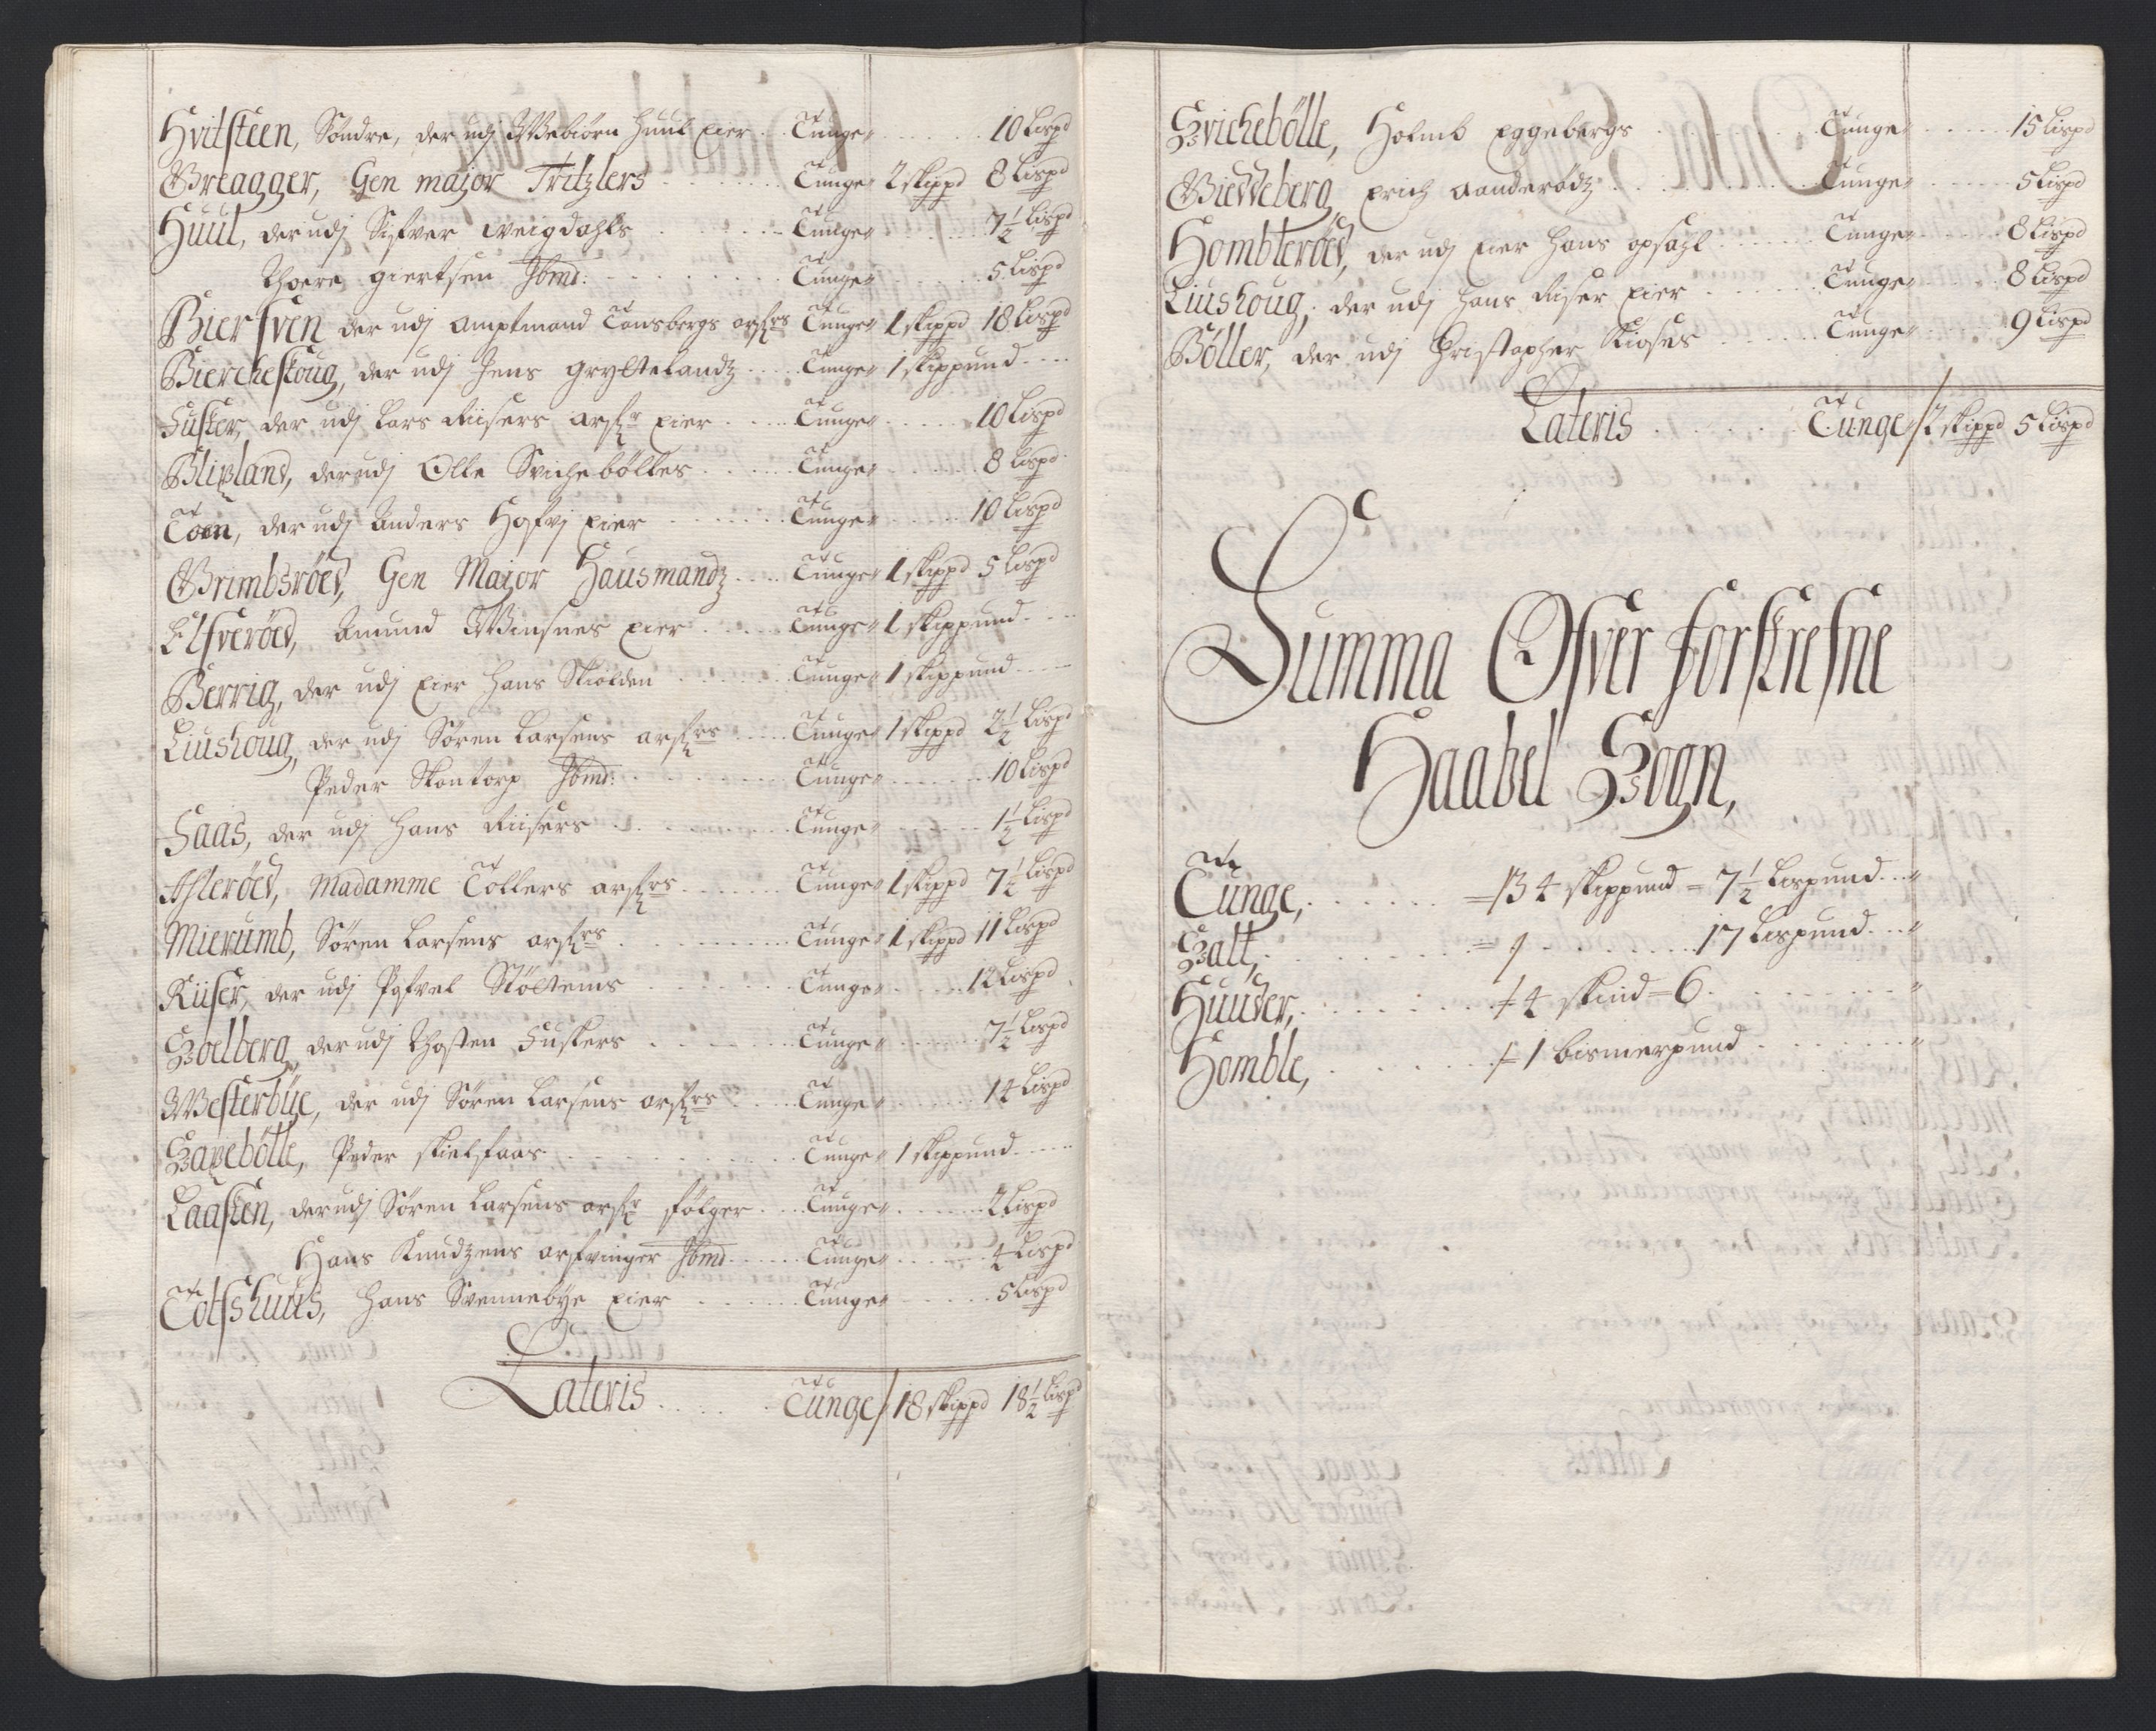 Hvitsteen, Söndre, der udj Webiörn Huul eier . . Tunge . . . 10 Lispd
Breagger, Gen major Tritzlers . . . Tunge 2 skippd 8 Lispd
Huul, der udj Sifver Weigdahls . . . Tunge . . . 7½ Lispd
Thore giertsen Ibmd: . . . Tunge . . . 5 Lispd
Biersven der udj Amptmand Tonsbergs arf:rs Tunge 1 skippd 18 Lispd
Bierckeskoug, der udj Jens gryttelandz . . . Tunge 1 skippund . . .
Fusker, der udj Lars Riisers arf:r eier . . . Tunge . . . 10 Lispd
Blixland, der udj Olle Svichebölles . . . Tunge . . . 8 Lispd
Toen, der udj Anders Hofvj eier . . . Tunge . . . 10 Lispd
Grimbsröed, Gen Major Hausmandz . . . Tunge 1 skippd 5 Lispd
Elfveröed, Amund Winsnes eier . . . Tunge 1 skippund . . .
Berrig, der udj eier Hans Skiolden . . . Tunge 1 skippund . . .
Liushoug, der udj Sören Larsens arf:rs . . . Tunge 1 skippd 2½ Lispd
Peder Skontorp Ibmd: . . . Tunge . . . 10 Lispd
Faas, der udj Hans Riisers . . . Tunge . . . 1½ Lispd
Ahleröed, Madamme Tollers arf:rs . . . Tunge 1 skippd 7½ Lispd
Mierumb, Sören Larsens arf:rs . . . Tunge 1 skippd 11 Lispd
Riiser, der udj Pofvel Stöltens . . . Tunge . . . 12 Lispd
Soelberg, der udj Thosten Fuskers . . . Tunge . . . 7½ Lispd
Westerbÿe, der udj Sören Larsens arf:rs . . . Tunge . . . 14 Lispd
Saxebölle, Peder skielfaas . . . Tunge 1 skippund . . .
Laasken, der udj Sören Larsens arf:r fölger . . . Tunge . . . 2 Lispd
Hans Knudzens arfvinger Ibmd . . . Tunge . . . 4 Lispd
Totshuus, Hans Svennebye eier . . . Tunge . . . 5 Lispd
Lateris . . . Tunge / 18 skippd 18½ Lispd
Svichebölle, Holmb eggebergs . . . Tunge . . . 15 Lispd
Bieveberg, Erich Aanderödz . . . Tunge . . . 5 Lispd
Hombleröed, der udj eier Hans opsahl . . . Tunge . . . 8 Lispd
Liushoug, der udj Hans Riser eier . . . Tunge . . . 8 Lispd
Böller, der udj Christopher Kioses . . . Tunge . . . 9 Lispd
Lateris . . . Tunge / 2 skippd 5 Lispd
Summa Ofver forskrefne
Haabel Sogn,
Tunge, . . . = 134 skippund = 7½ Lispund . . .
Salt, . . . = / . . . 17 Lispund . . .
Huuder, . . . / 4 skind = 6 . . .
Homble, . . . / 1 bismerpund . . .